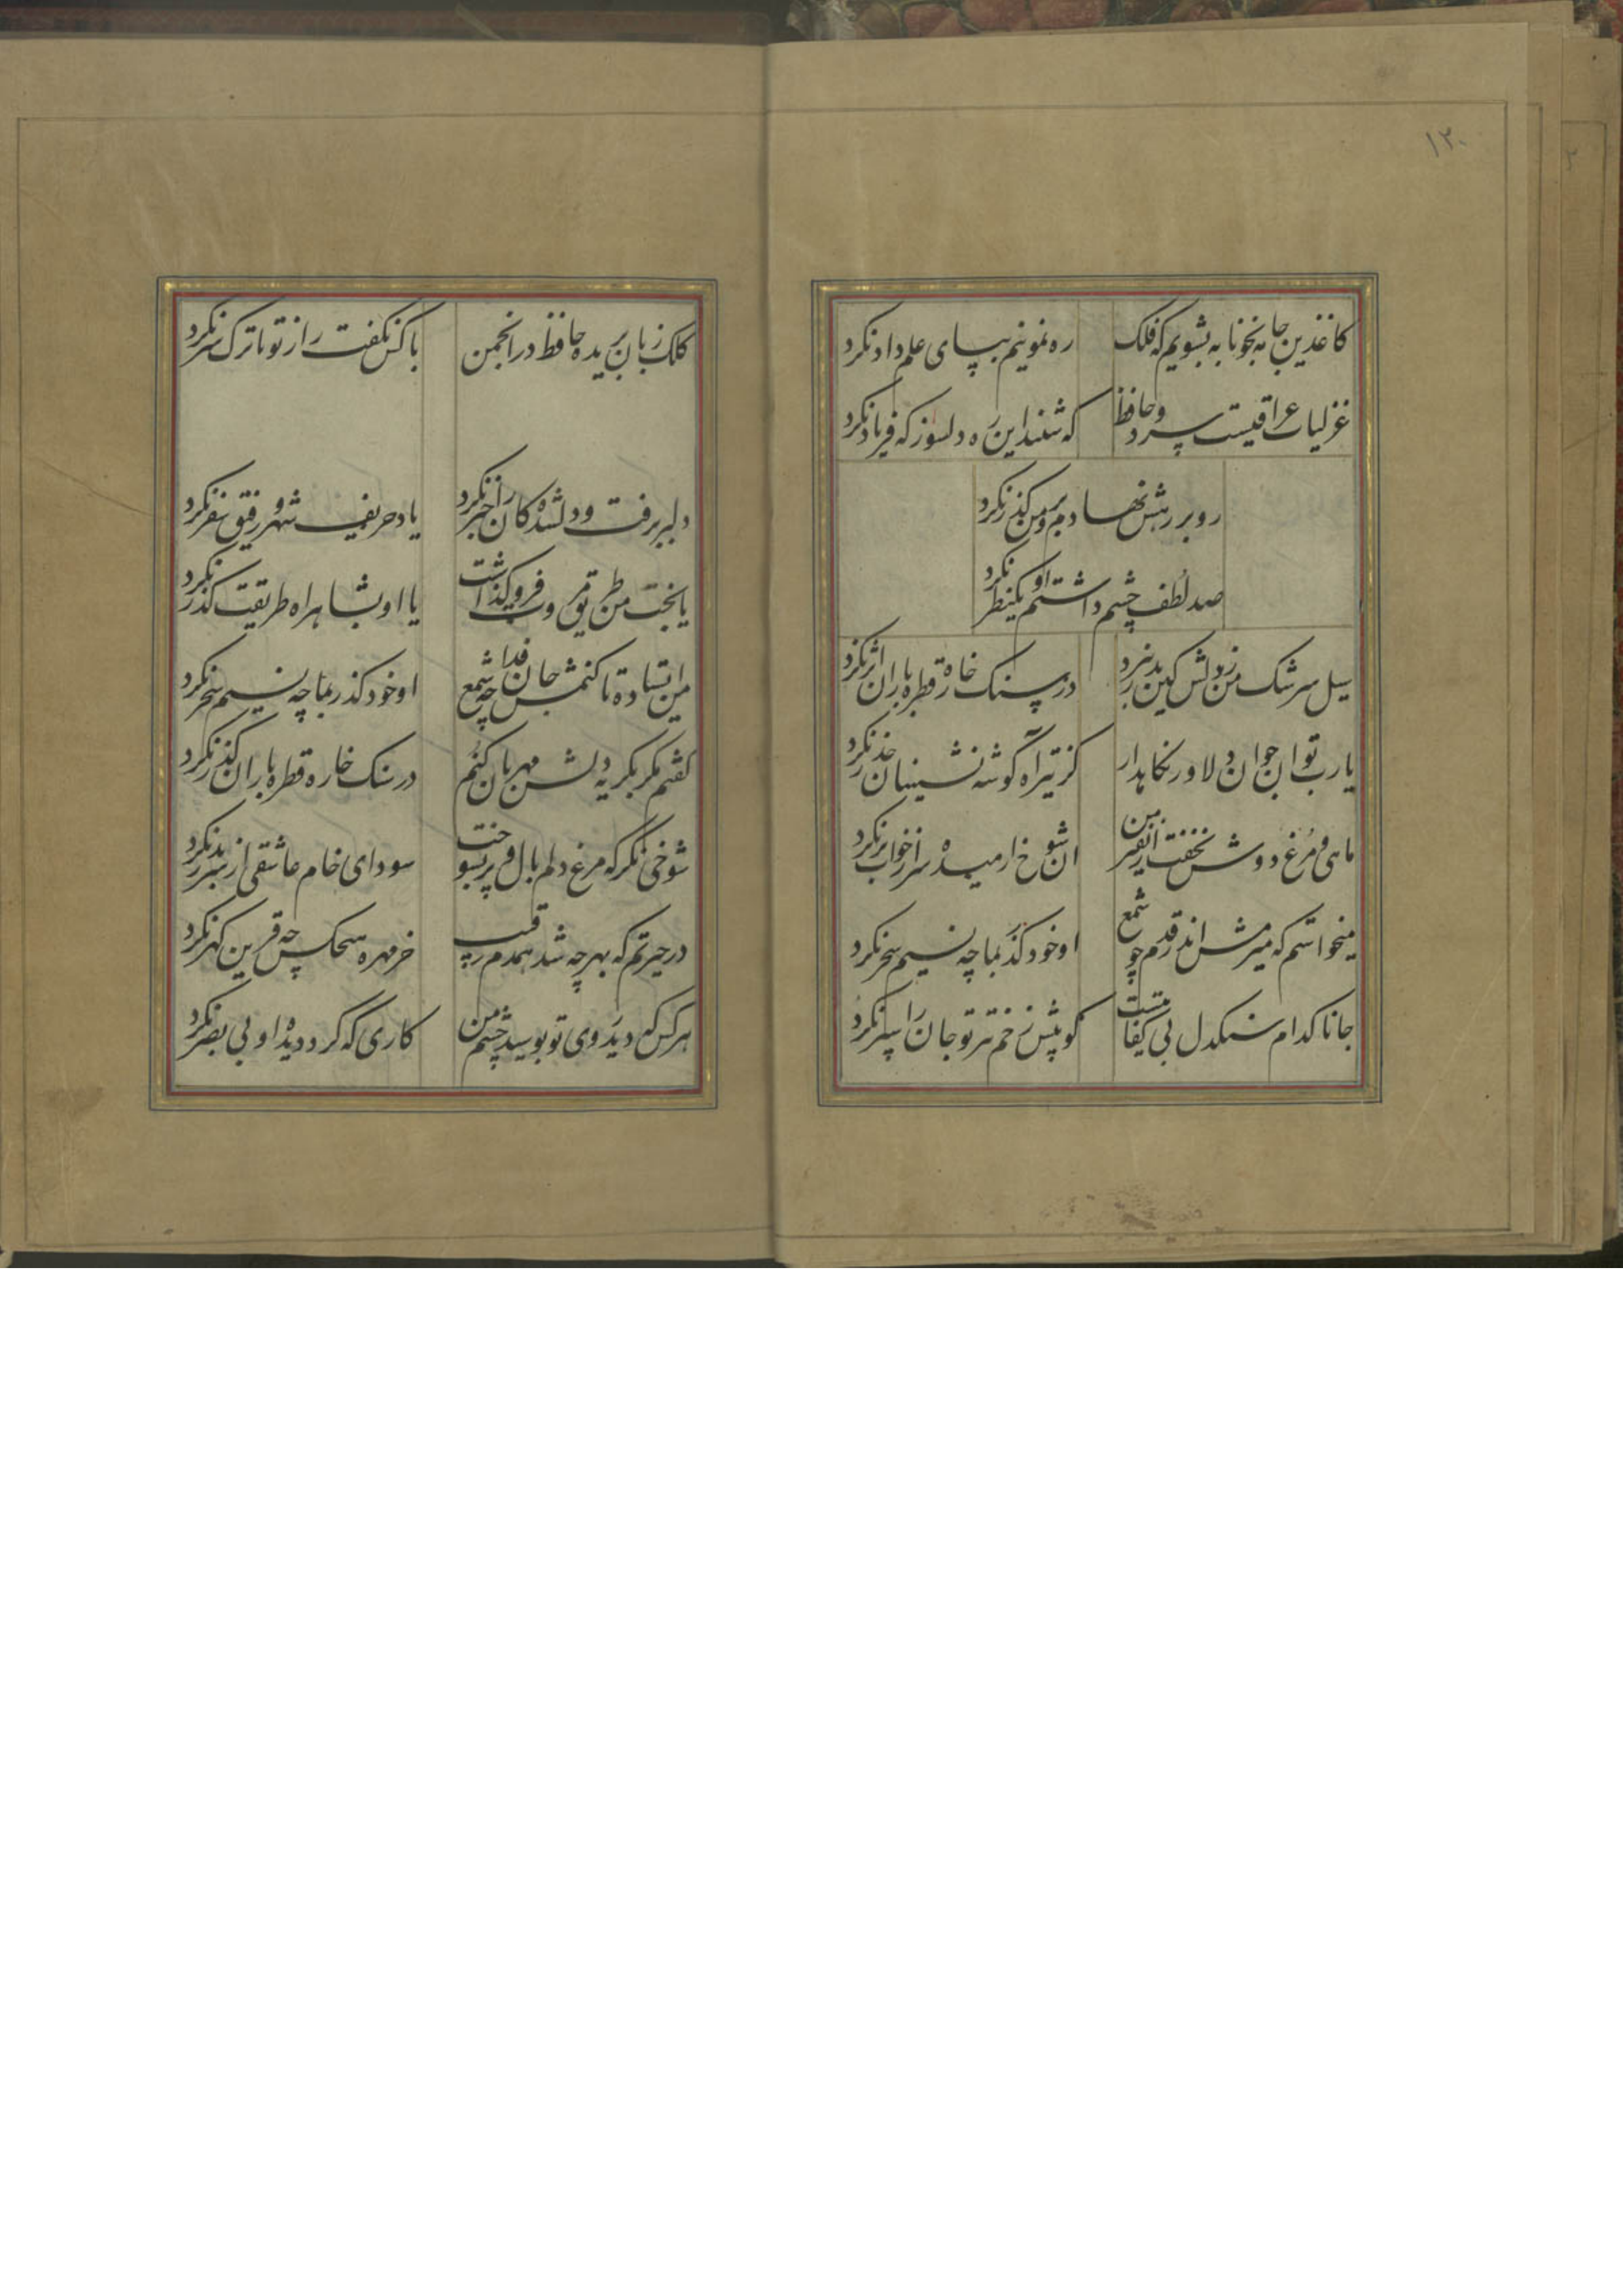 ۱۲۰
کاغذین جامه بخونابه بشویم که فلک
ره نمونیم بپای علم داد نکرد
غزلیات عراقیست سرود حافظ
که شنید این ره دلسوز که فریاد نکرد
رو بر رهش نهادم و بر من گذر نکرد
صد لطف چشم داشتم او یکنظر نکرد
سیل سرشک من ز دلش کین بدر نبرد
در سنک خاره قطره باران اثر نکرد
یا رب تو ان جوان دلاور نکاهدار
کز تیر آه گوشه نشینان حذر نکرد
ماهی و مرغ دوش نخفت از نفیر من
ان شوخ ارمیده سر از خواب بر نکرد
میخواستم که میرمش اندر قدم چو شمع
او خود گذر بما چه نسیم سحر نکرد
جانا کدام سنکدل بی کفایتست
کو پیش زخم تیر تو جان را سپر نکرد
کلک زبان بریده حافظ در انجمن
با کس نکفت راز تو تا ترک سر نکرد
دلبر برفت و دلشدکان را خبر نکرد
یاد حریف شهر و رفیق سفر نکرد
یا بخت من طریق مروت فرو گذاشت
یا او بشاهراه طریقت گذر نکرد
من ایستاده تا کنمش جان فدا چه شمع
او خود گذر بما چه نسیم سحر نکرد
کفتم مکر بکریه دلش مهربان کنم
در سنک خاره قطره باران گذر نکرد
شوخی نکر که مرغ دلم بال و پر بسوخت
سودای خام عاشقی از سر بدر نکرد
در حیرتم که بهر چه شد همدم رقیب
خرمهره هیچکس چه قرین گهر نکرد
هر کس که دید روی تو بوسید چشم من
کاری که کرد دیده او بی بصر نکرد